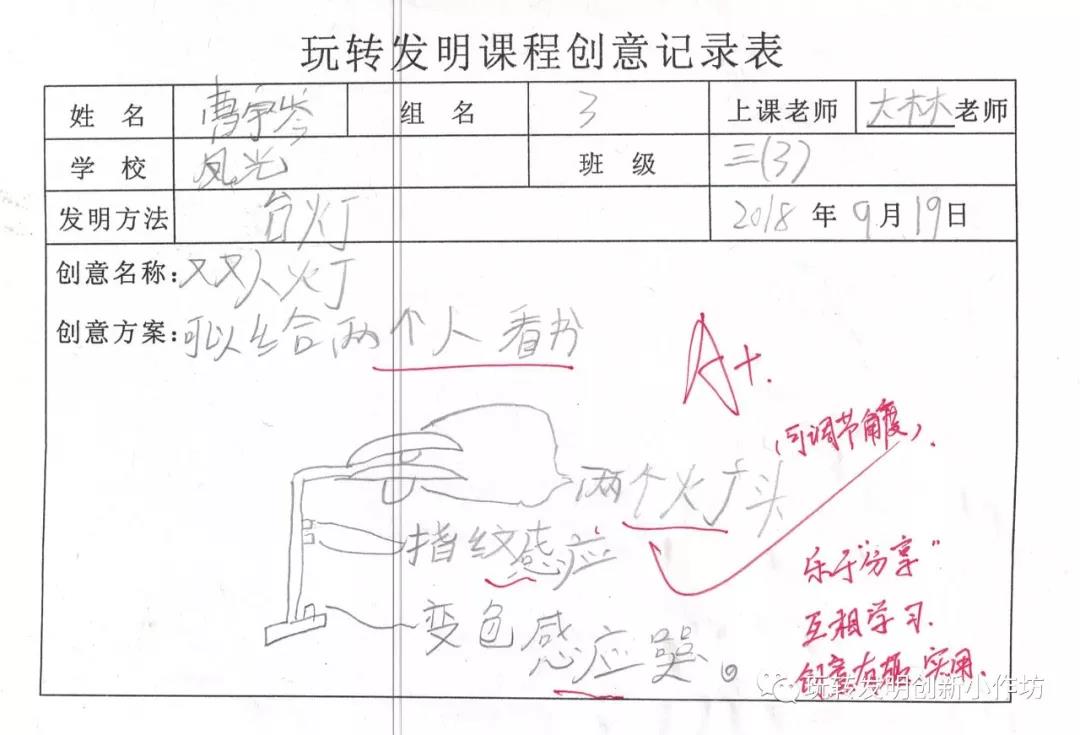 玩转发明课程创意记录表
姓 名 曹宇岑 组 名 3 上课老师 大林老师
学 校 凤光 班 级 三(3)
发明方法 台灯 2018 年 9 月 19 日
创意名称:双人灯
创意方案:可以给两个人看书
A+.
(可调节角度).
两个灯头
指纹感应
乐于"分享"
变色感应器。
互相学习.
创意有趣 实用.
玩转发明创新小作坊